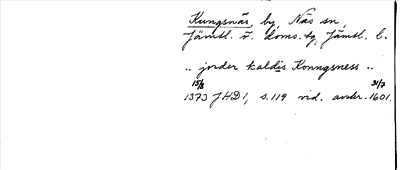 Kungsnäs, by, Näs sn,
Jämtl. v. doms.-tg, Jämtl. l.
.. jorder kaldis Konngsness ..
15/8 31/7
1373 JHD 1, s. 119 vid. avskr. 1601.